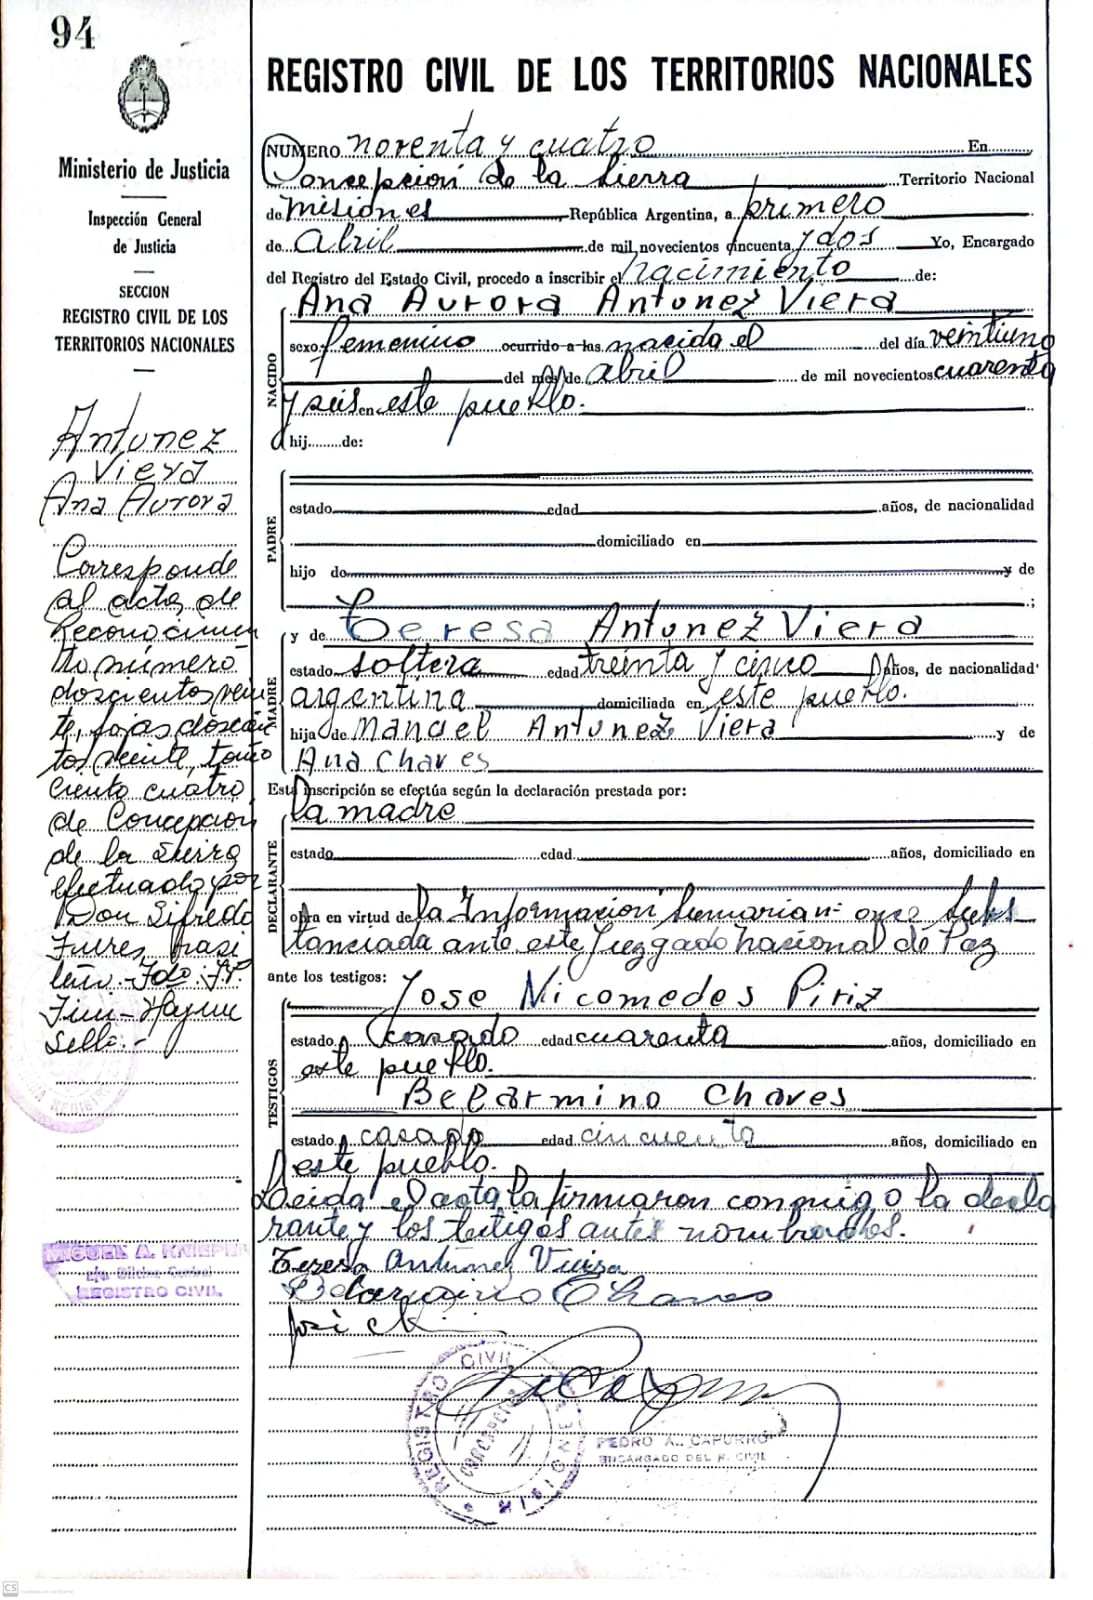 94
Ministerio de Justicia
Inspección General
de Justicia
SECCION
REGISTRO CIVIL DE LOS
TERRITORIOS NACIONALES
Antunez
Viera
Ana Aurora
Corresponde
al acta de
Reconocimien
to número
doscientos vein
te, fojas doscien
tos veinte, tomo
ciento cuatro
de Concepcion
de la Sierra
efectuado por
Don Sifredo
brasi
leño.- Fdo:
Sello.-
MIGUEL A.
REGISTRO CIVIL
REGISTRO CIVIL DE LOS TERRITORIOS NACIONALES
NUMERO noventa y cuatro En
Concepcion de la Sierra Territorio Nacional
de Misiones República Argentina, a primero
de Abril de mil novecientos cincuenta y dos Yo, Encargado
del Registro del Estado Civil, procedo a inscribir el nacimiento de:
NACIDO
Ana Aurora Antunez Viera
sexo femenino ocurrido a las nacida el del día veintiuno
del mes de abril de mil novecientos cuarenta
y seis en este pueblo.
hij de:
PADRE
estado edad años, de nacionalidad
domiciliado en
hijo de y de
;
MADRE
y de Teresa Antunez Viera
estado soltera edad treinta y cinco años, de nacionalidad
argentina domiciliada en este pueblo.
hija de Manuel Antunez Viera y de
Ana Chaves
Esta inscripción se efectúa según la declaración prestada por:
DECLARANTE
la madre
estado edad años, domiciliado en
obra en virtud de la Informacion Sumaria nº once subs
tanciada ante este Juzgado Nacional de Paz
ante los testigos:
TESTIGOS
Jose Nicomedes Piriz
estado casado edad cuarenta años, domiciliado en
este pueblo.
Belarmino Chaves
estado casado edad cincuenta años, domiciliado en
este pueblo.
Leida el acta la firmaron conmigo la decla
rante y los testigos antes nombrados.
Teresa Antunez Vieira
Belarmino Chaves
José
REGISTRO CIVIL
CONCEPCION
MISIONES
PEDRO A. CAPURRO
ENCARGADO DEL R. CIVIL
CS